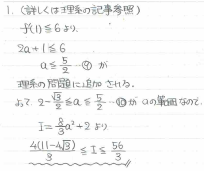 1. (詳しくは理系の記事参照)
f(1) ≦ 6 より
2a + 1 ≦ 6
a ≦ 5/2 …⑨ が
理系の問題に追加される。
よって 2 - √3/2 ≦ a ≦ 5/2 …⑩ が aの範囲なので
I = 8/3 a² + 2 より
4(11-4√3)/3 ≦ I ≦ 56/3